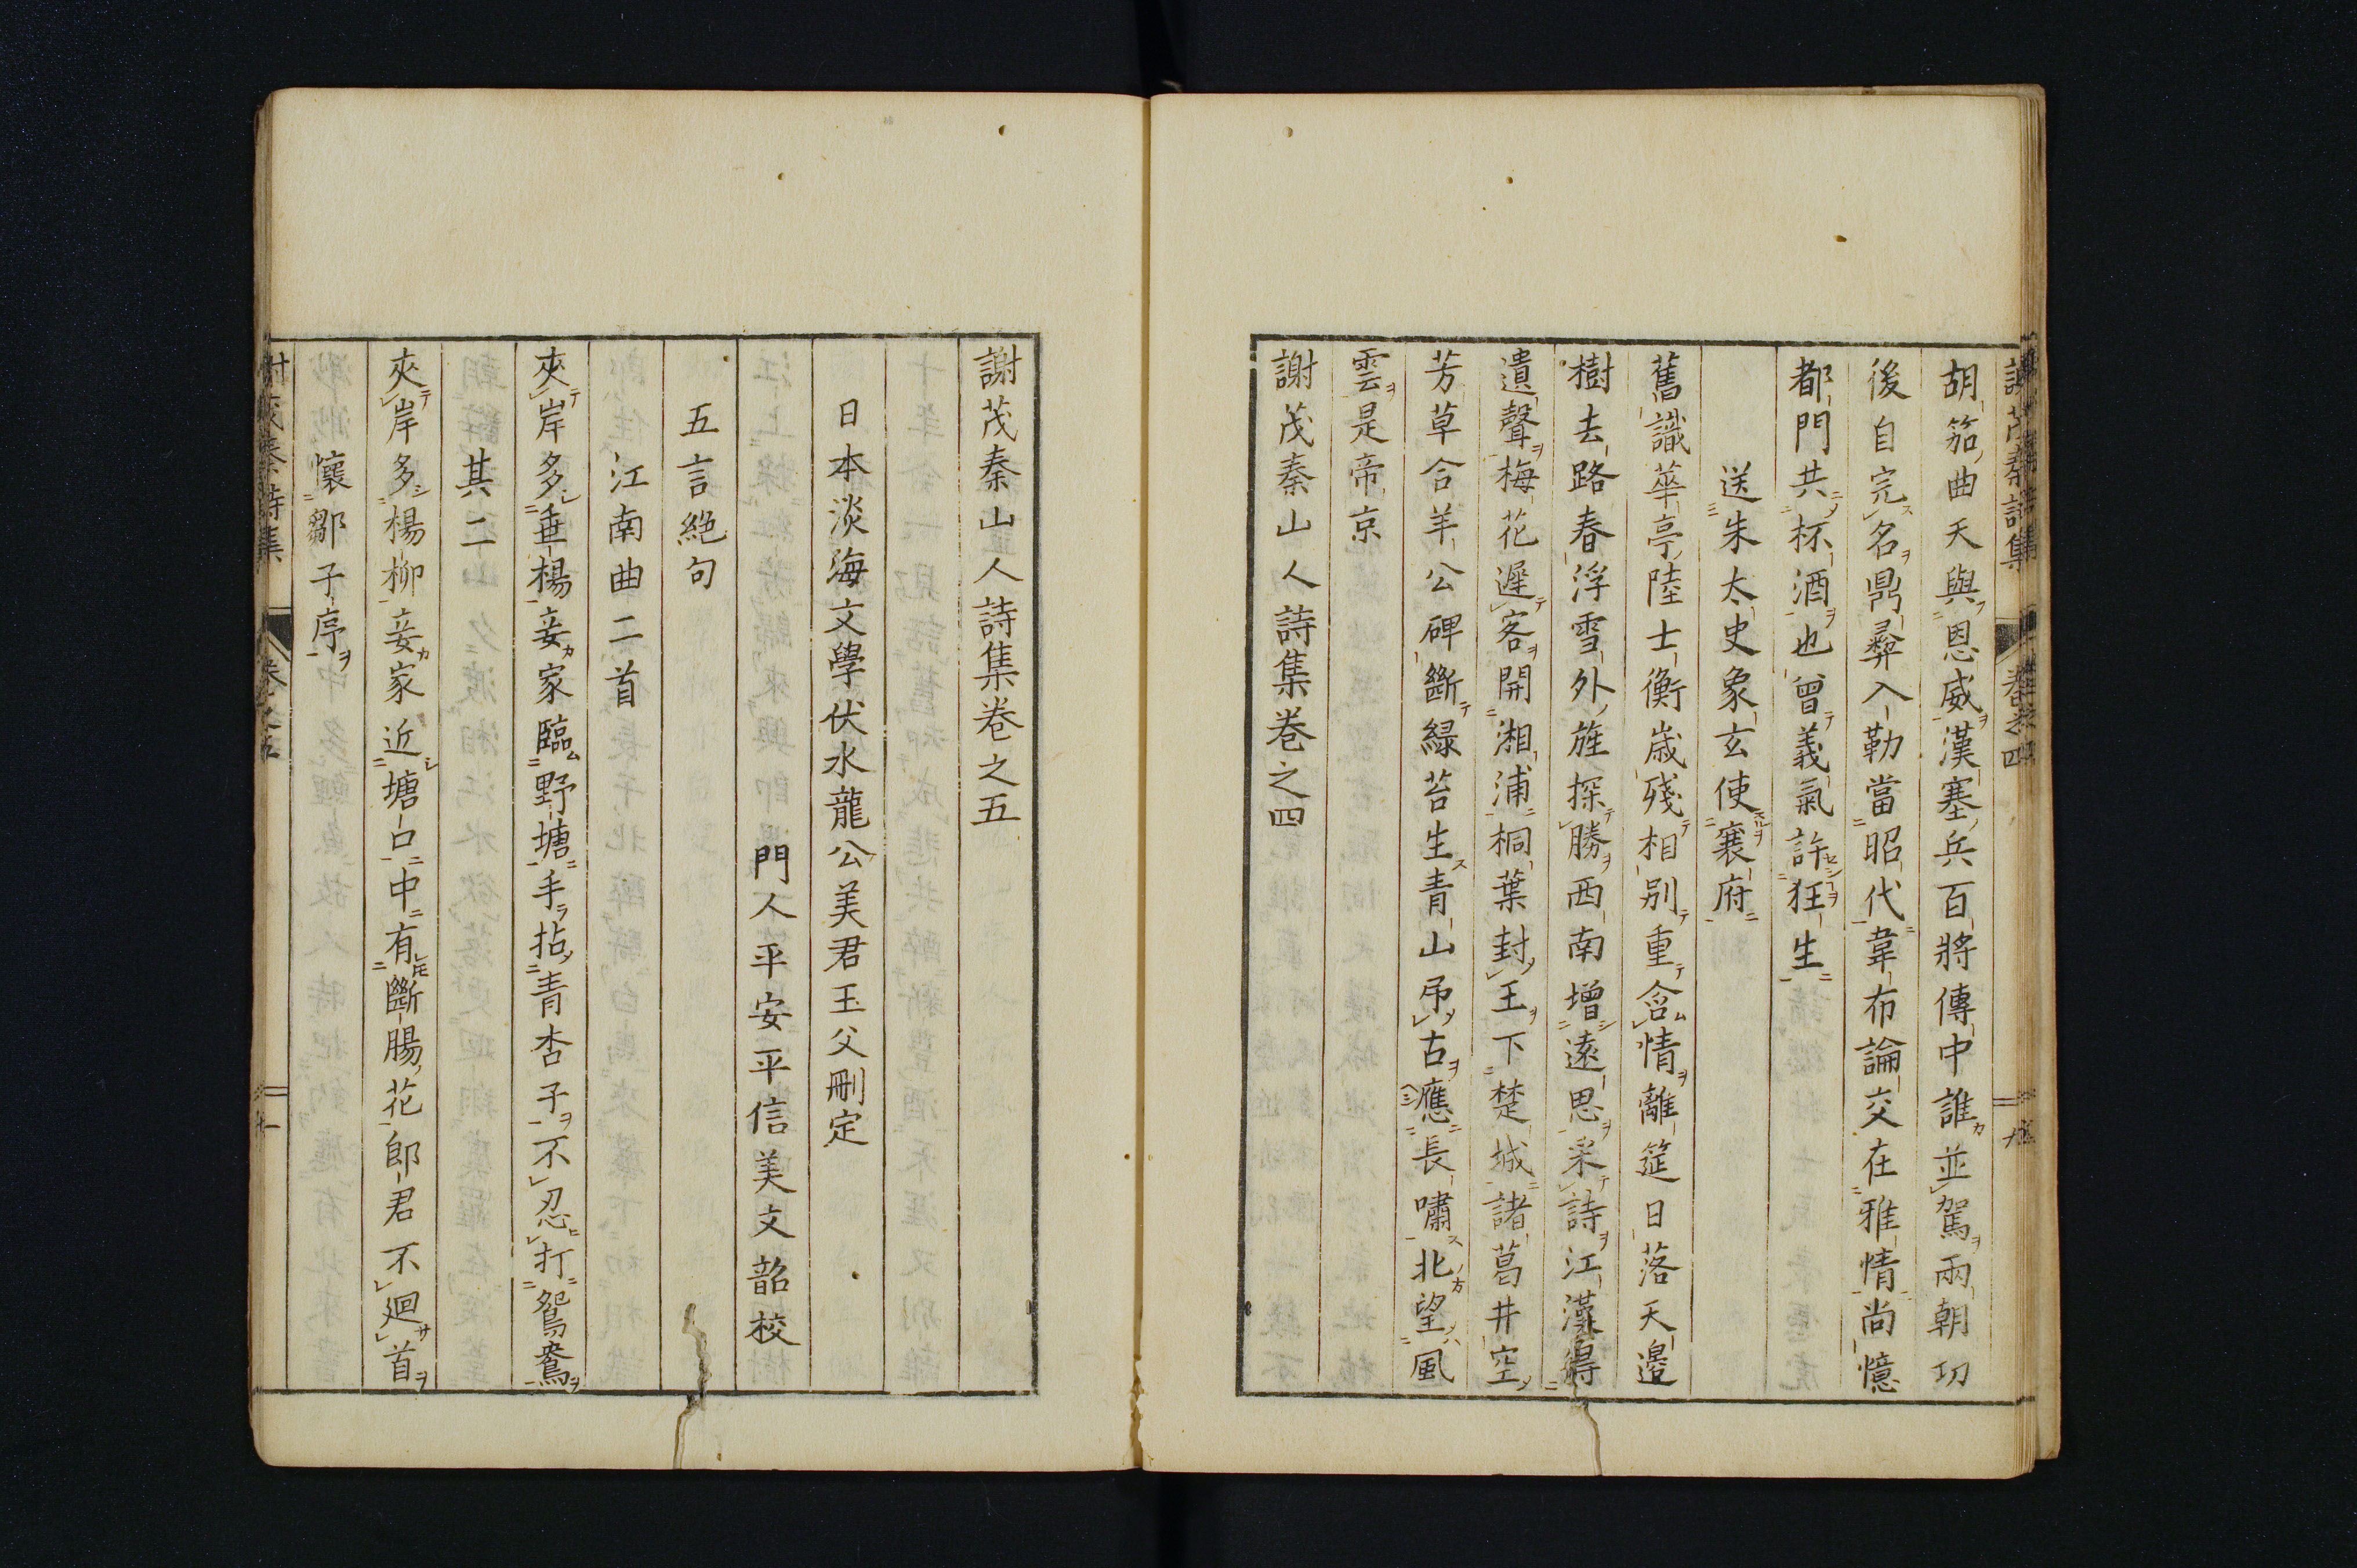 胡笳曲天與恩威漢塞兵百將傳中誰並駕兩朝功
後自完名鼎彛入勒當昭代韋布論交在雅情尚憶
都門共杯酒也曾義氣許狂生
送朱太史象玄使襄府
舊識華亭陸士衡歳殘相別重含情離筵日落天邊
樹去路春浮雪外旌探勝西南增遠思采詩江漢得
遺聲梅花遲客開湘浦桐葉封王下楚城諸葛井空
芳草合羊公碑斷緑苔生青山吊古應長嘯北望風
雲是帝京
謝茂秦山人詩集卷之四
謝茂秦山人詩集卷之五
日本淡海文學伏水龍公美君玉父刪定
門人平安平信美文韶校
五言絕句
江南曲二首
夾岸多垂楊妾家臨野塘手拈青杏子不忍打鴛鴦
其二
夾岸多楊柳妾家近塘口中有斷腸花郎君不廻首
懷鄒子序